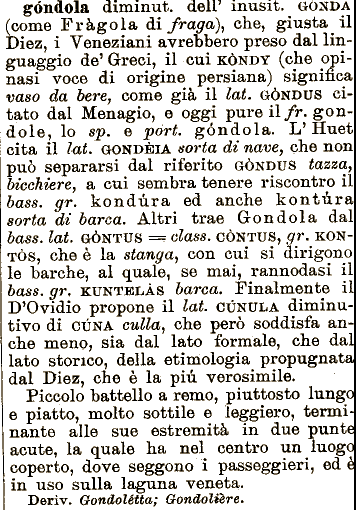 góndola diminut. dell' inusit. GÓNDA
(come Fràgola di fraga), che, giusta il
Diez, i Veneziani avrebbero preso dal lin-
guaggio de' Greci, il cui KÒNDY (che opi-
nasi voce di origine persiana) significa
vaso da bere, come già il lat. GÒNDUS ci-
tato dal Menagio, e oggi pure il fr. gon-
dole, lo sp. e pórt. góndola. L' Huet
cita il lat. GONDÈIA sorta di nave, che non
può separarsi dal riferito GÒNDUS tazza,
bicchiere, a cui sembra tenere riscontro il
bass. gr. kondúra ed anche kontúra
sorta di barca. Altri trae Gondola dal
bass. lat. GÒNTUS = class. CÒNTUS, gr. KON-
TÒS, che è la stanga, con cui si dirigono
le barche, al quale, se mai, rannodasi il
bass. gr. KUNTELÀS barca. Finalmente il
D'Ovidio propone il lat. CÚNULA diminu-
tivo di CÚNA culla, che però soddisfa an-
che meno, sia dal lato formale, che dal
lato storico, della etimologia propugnata
dal Diez, che è la piú verosimile.
Piccolo battello a remo, piuttosto lungo
e piatto, molto sottile e leggiero, termi-
nante alle sue estremità in due punte
acute, la quale ha nel centro un luogo
coperto, dove seggono i passeggieri, ed è
in uso sulla laguna veneta.
Deriv. Gondolétta; Gondolière.